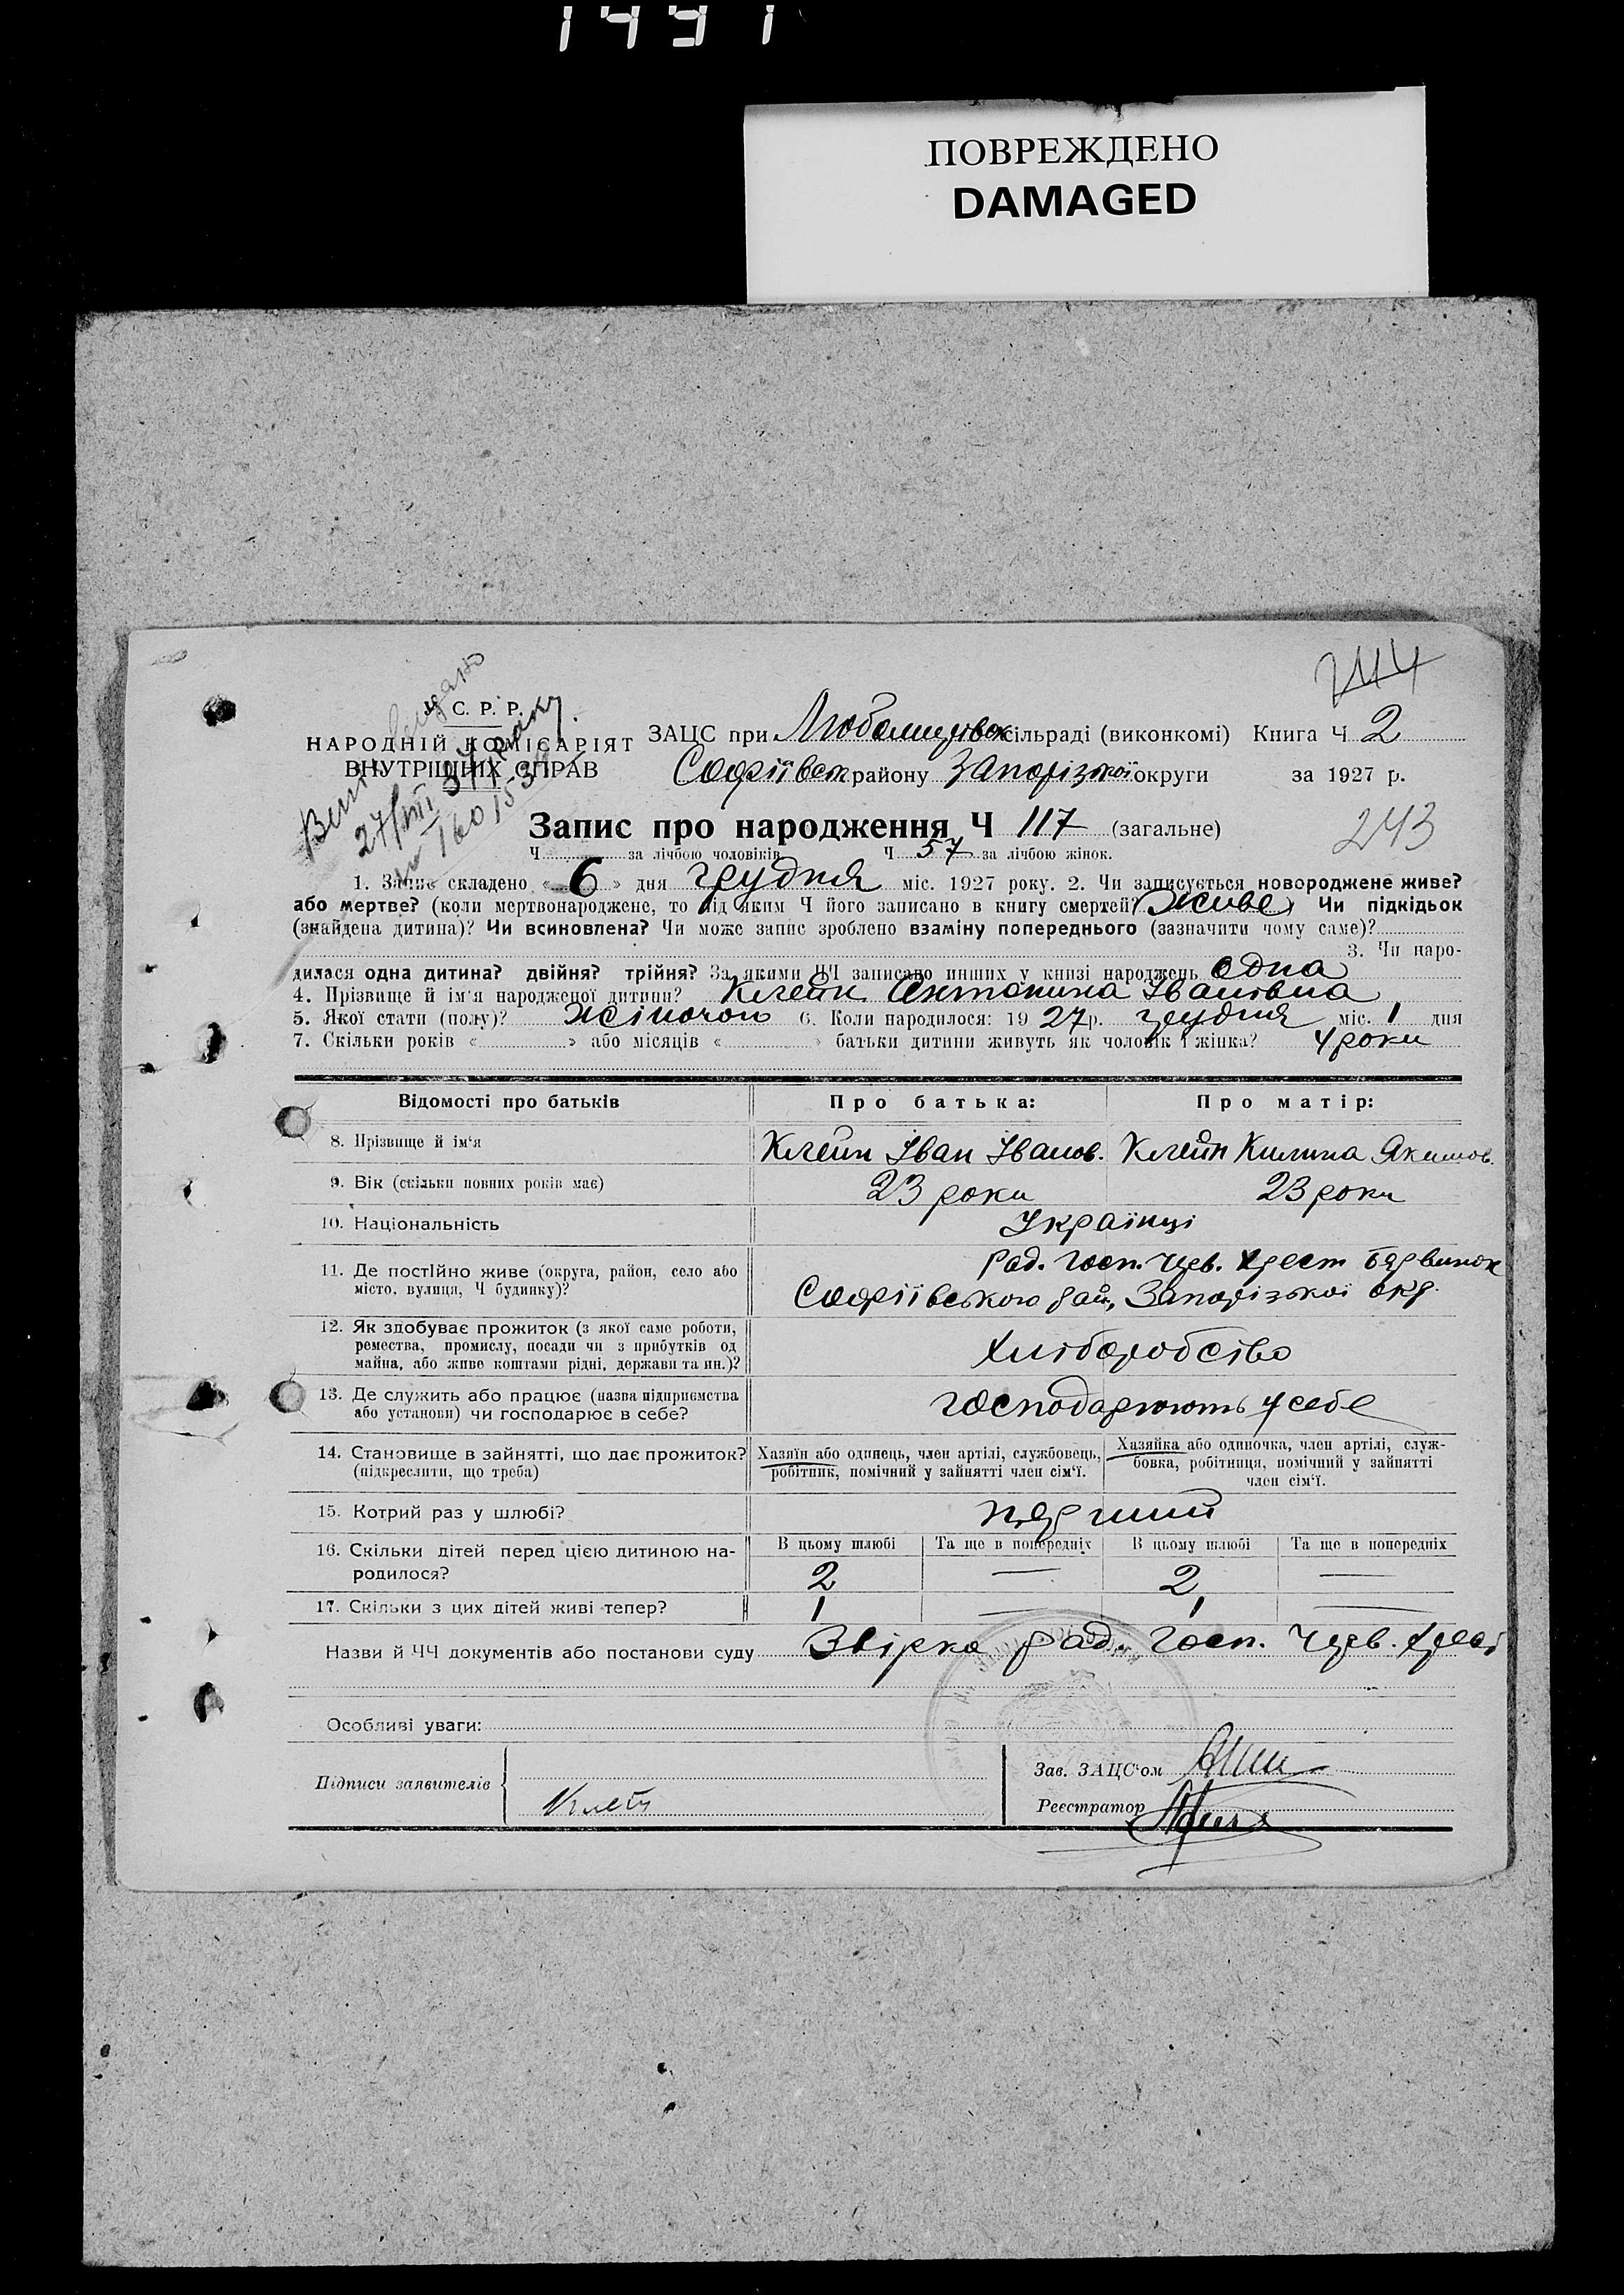 1491
ПОВРЕЖДЕНО
DAMAGED
244
У. С. Р. Р.
НАРОДНІЙ КОМІСАРІЯТ
ВНУТРІШНІХ СПРАВ
видано
27/VIII 37 року.
ЗАЦС при Любомирівск сільраді (виконкомі) Книга Ч 2
Софіївськ району Запорізької округи за 1927 р.
Запис про народження Ч 117 (загальне)
243
Ч за лічбою чоловіків Ч 57 за лічбою жінок.
1. Запис складено « 6 » дня грудня міс. 1927 року. 2. Чи записується новороджене живе?
або мертве? (коли мертвонароджене, то під яким Ч його записано в книгу смертей) Живе Чи підкідьок
(знайдена дитина)? Чи всиновлена? Чи може запис зроблено взаміну попереднього (зазначити чому саме)?
3. Чи наро-
дилася одна дитина? двійня? трійня? За якими ЧЧ записано инших у книзі народжень одна
4. Прізвище й ім'я народженої дитини? Клейн Антонина Іванівна
5. Якої стати (полу)? Жіночой 6. Коли народилося: 19 27 р. грудня міс. 1 дня
7. Скільки років « » або місяців « » батьки дитини живуть як чоловік і жінка? 4 роки
Відомості про батьків Про батька: Про матір:
8. Прізвище й ім'я Клейн Іван Іванов. Клейн Килина Якимов.
9. Вік (скільки повних років має) 23 роки 23 роки
10. Національність Українці
Рад. Госп. Черв. Хрест Барвинок
11. Де постІйно живе (округа, район, село або
місто, вулиця, Ч будинку)? Софіївського рай, Запорізької окр.
12. Як здобуває прожиток (з якої саме роботи,
ремества, промислу, посади чи з прибутків од
майна, або живе коштами рідні, держави та ин.)? Хліборобство
13. Де служить або працює (назва підприємства
або установи) чи господарює в себе? господарюють у себе
14. Становище в зайнятті, що дає прожиток? Хазяїн або одинець, член артілі, службовець, Хазяйка або одиночка, член артілі, служ-
(підкреслити, що треба) робітник, помічний у зайнятті член сім'ї. бовка, робітниця, помічний у зайнятті
член сім'ї.
15. Котрий раз у шлюбі? перший
16. Скільки дітей перед цією дитиною на- В цьому шлюбі Та ще в попередніх В цьому шлюбі Та ще в попередніх
родилося? 2 — 2 —
17. Скільки з цих дітей живі тепер? 1 — 1 —
Назви й ЧЧ документів або постанови суду Звірка рад. Госп. Черв. Хрест
Особливі уваги:
Зав. ЗАЦС'ом
Підписи заявителів Клейн
Реєстратор